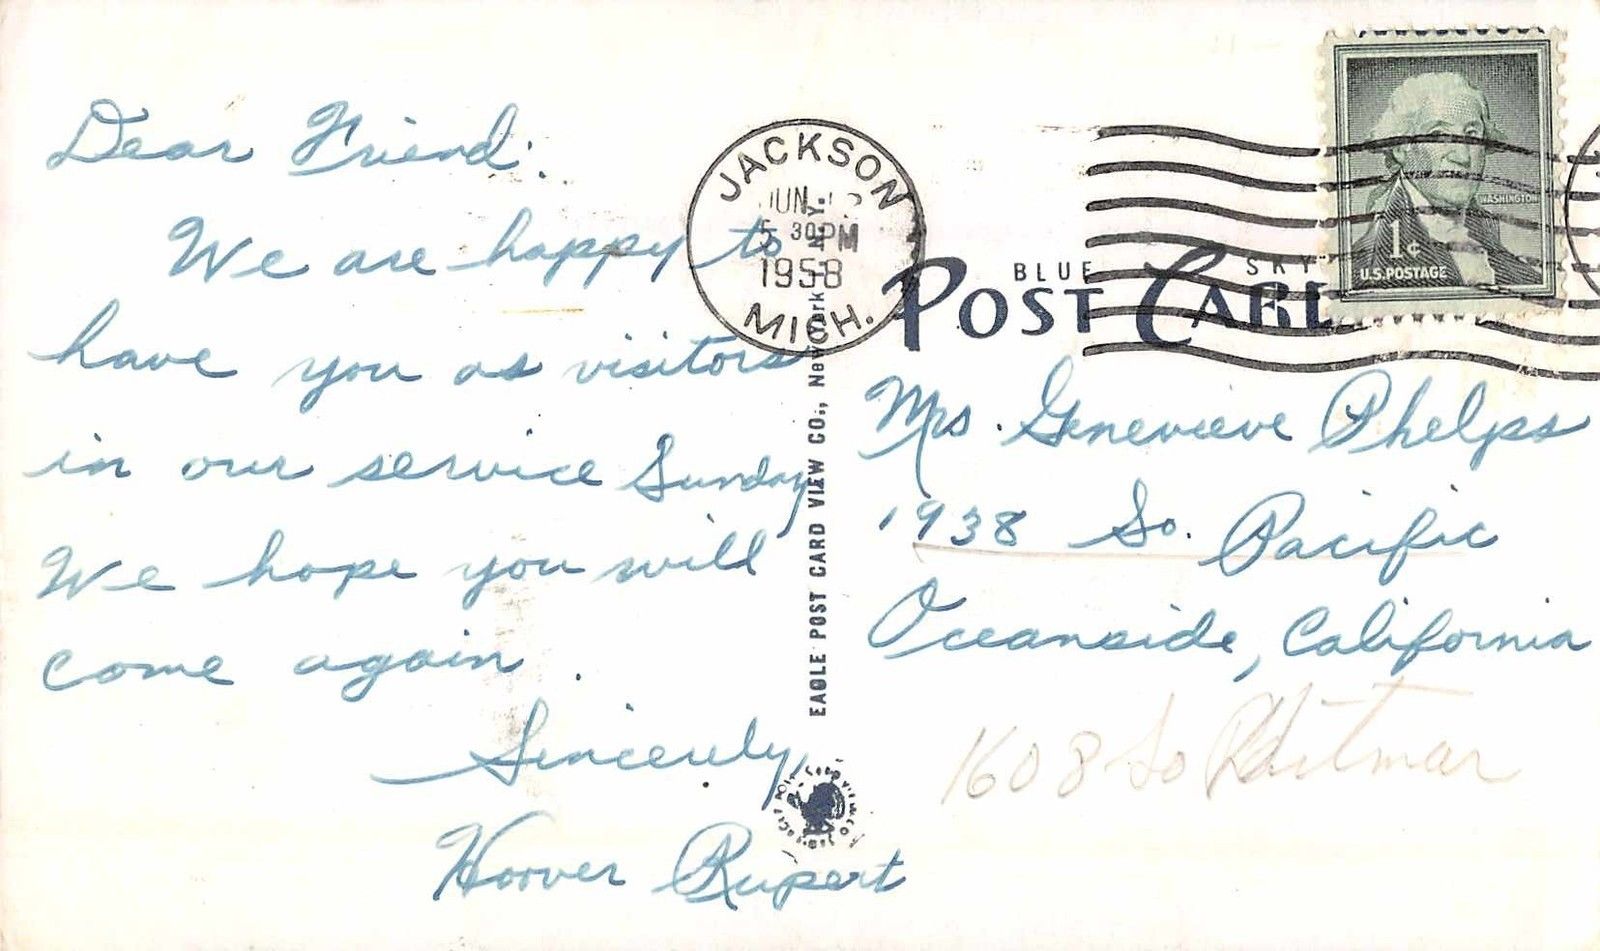 Dear Friend:
We are happy to
have you as visitors
in our service Sunday
We hope you will
come again.
Sincerely,
Hoover Rupert
JACKSON
JUN
5 30 PM
1958
MICH.
EAGLE POST CARD VIEW CO., New York 1, N.Y.
BLUE SKY
POST CARD
WASHINGTON
1¢
U.S. POSTAGE
Mrs. Genevieve Phelps
1938 So. Pacific
Oceanside, California
1608 So Ditmar